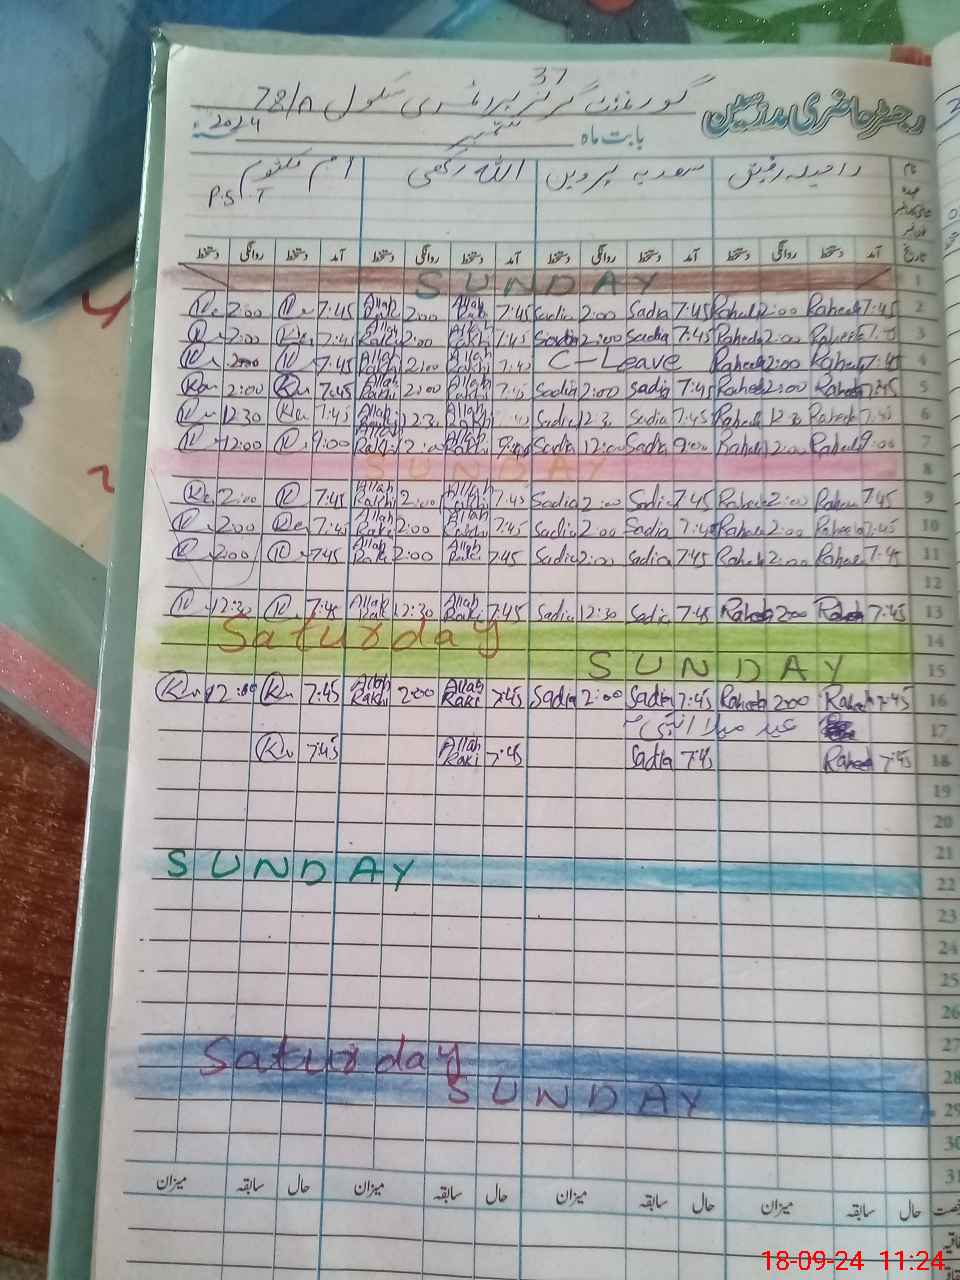 37
رجسٹر حاضری مدرسین گورنمنٹ گرلز پرائمری سکول 78/A
بابت ماہ ستمبر 2024
نام راحیلہ رفیق سعدیہ پروین اللہ رکھی ام کلثوم
عہدہ P.S.T
تاریخ آمد دستخط روانگی دستخط آمد دستخط روانگی دستخط آمد دستخط روانگی دستخط آمد دستخط روانگی دستخط
SUNDAY 1
2:00 7:45 Allah Raki 2:00 Allah Raki 7:45 Sadia 2:00 Sadia 7:45 Raheela 2:00 Raheela 7:45 2
2:00 7:45 Allah Rakhi 2:00 Allah Rakhi 7:45 Sadia 2:00 Sadia 7:45 Raheela 2:00 Raheela 3
7:45 Allah Rakhi 2:00 Allah Rakhi C-Leave Raheela 2:00 Raheela 7:45 4
2:00 7:45 Allah Rakhi 2:00 Allah Rakhi 7:45 Sadia 2:00 Sadia 7:45 Raheela 2:00 Raheela 7:45 5
12:30 7:45 Allah 12:3 Allah Sadia 12:3 Sadia 7:45 Raheela 12:30 Raheela 7:45 6
12:00 9:00 Allah Rakhi Allah Rakhi 9:00 Sadia 12:00 Sadia 9:00 Raheela 12:00 Raheela 9:00 7
SUNDAY 8
2:00 7:45 Allah Rakhi 2:00 Allah Rakhi 7:45 Sadia 2:00 Sadia 7:45 Raheela 2:00 Raheela 7:45 9
2:00 7:45 Allah Raki 2:00 Allah Rakhi 7:45 Sadia 2:00 Sadia 7:45 Raheela 2:00 Raheela 7:45 10
2:00 7:45 Allah Raki 2:00 Allah Raki 7:45 Sadia 2:00 Sadia 7:45 Raheela 2:00 Raheela 7:45 11
12
12:30 7:45 Allah Raki 12:30 Allah Raki 7:45 Sadia 12:30 Sadia 7:45 Raheela 2:00 Raheela 7:45 13
Saturday 14
SUNDAY 15
12:00 7:45 Allah Rakhi 2:00 Allah Raki 7:45 Sadia 2:00 Sadia 7:45 Raheela 2:00 Raheela 7:45 16
عید میلاد النبی 17
7:45 Allah Raki 7:45 Sadia 7:45 Raheela 7:45 18
19
20
21
SUNDAY 22
23
24
25
26
27
Saturday 28
SUNDAY 29
30
31
حال سابقہ میزان حال سابقہ میزان حال سابقہ میزان حال سابقہ میزان
18-09-24 11:24